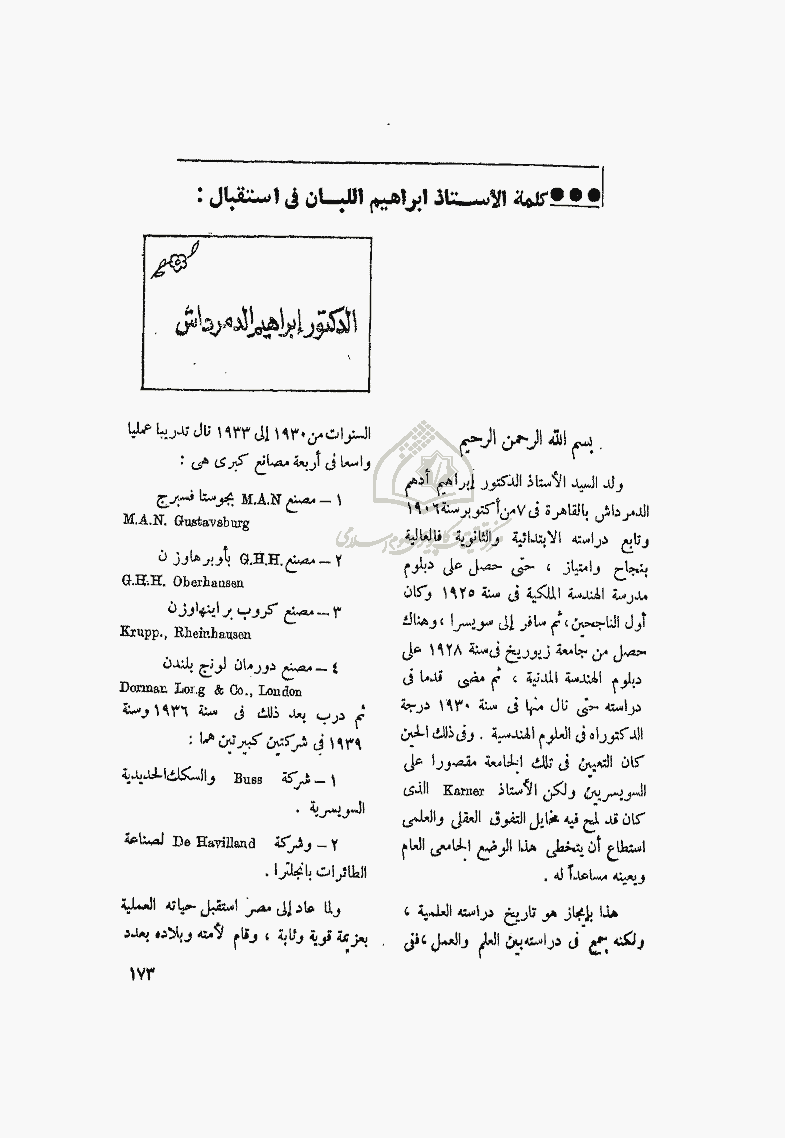 كلمة الأستاذ ابراهيم اللبان فى استقبال :
الدكتور إبراهيم الدمرداش
بسم الله الرحمن الرحيم
ولد السيد الأستاذ الدكتور إبراهيم أدهم
الدمرداش بالقاهرة فى ٧ من أكتوبر سنة ١٩٠٦
وتابع دراسته الابتدائية والثانوية فالعالية
بنجاح وامتياز ، حتى حصل على دبلوم
مدرسة الهندسة الملكية فى سنة ١٩٢٥ وكان
أول الناجحين ، ثم سافر إلى سويسرا ، وهناك
حصل من جامعة زيوريخ فى سنة ١٩٢٨ على
دبلوم الهندسة المدنية ، ثم مضى قدما فى
دراسته حتى نال منها فى سنة ١٩٣٠ درجة
الدكتوراه فى العلوم الهندسية . وفى ذلك الحين
كان التعيين فى تلك الجامعة مقصورا على
السويسريين ولكن الأستاذ Karner الذى
كان قد لمح فيه مخايل التفوق العقلى والعلمى
استطاع أن يتخطى هذا الوضع الجامعى العام
ويعينه مساعداً له .
هذا بإيجاز هو تاريخ دراسته العلمية ،
ولكنه جمع فى دراسته بين العلم والعمل ، ففى
السنوات من ١٩٣٠ إلى ١٩٣٣ نال تدريبا عمليا
واسعا فى أربعة مصانع كبرى هى :
١ – مصنع M.A.N بجوستا فسبرج
M.A.N. Gustavsburg
٢ – مصنع G.H.H. بأوبرهاوزن
G.H.H. Oberhausen
٣ – مصنع كروب براينهاوزن
Krupp., Rheinhausen
٤ – مصنع دورمان لونج بلندن
Dorman Long & Co., London
ثم درب بعد ذلك فى سنة ١٩٣٦ وسنة
١٩٣٩ فى شركتين كبيرتين هما :
١ – شركة Buss والسكك الحديدية
السويسرية .
٢ – وشركة De Havilland لصناعة
الطائرات بانجلترا .
ولما عاد إلى مصر استقبل حياته العملية
بعزيمة قوية وثابة ، وقام لأمته وبلاده بعدد
١٧٣